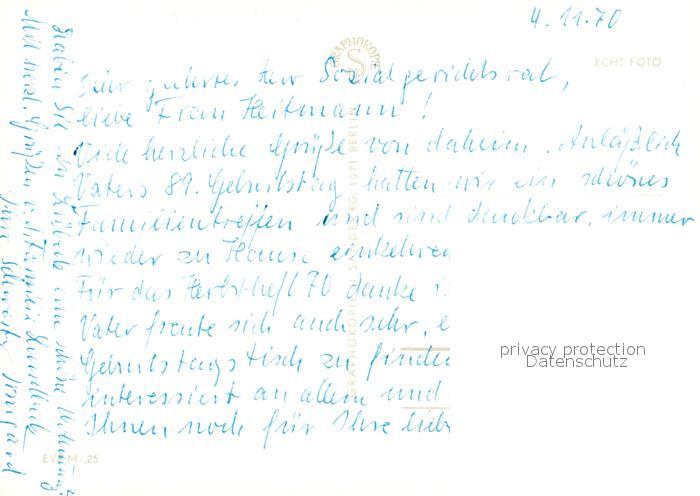 4.11.70
ECHT FOTO
GRAPHOKOPIE
S
Sehr geehrter Herr Sozialgerichtsrat,
liebe Frau Heitmann!
Viele herzliche Grüße von daheim. Anläßlich
Vaters 89. Geburtstag hatten wir ein schönes
Familientreffen und sind dankbar, immer
wieder zu Hause einkehren
Für das Herbstheft 70 danke
Vater freute sich auch sehr,
Geburtstagstisch zu finden
interessiert an allem und
Ihnen noch für Ihre lieb
GRAPHOKOPIE H. SANDER KG, 1071 BERLIN
EV M-25
privacy protection
Datenschutz
Haben Sie in eine schöne Wohnung?
Mit herzl. Grüßen v. d. Familie
Ihre Schwester Irmgard